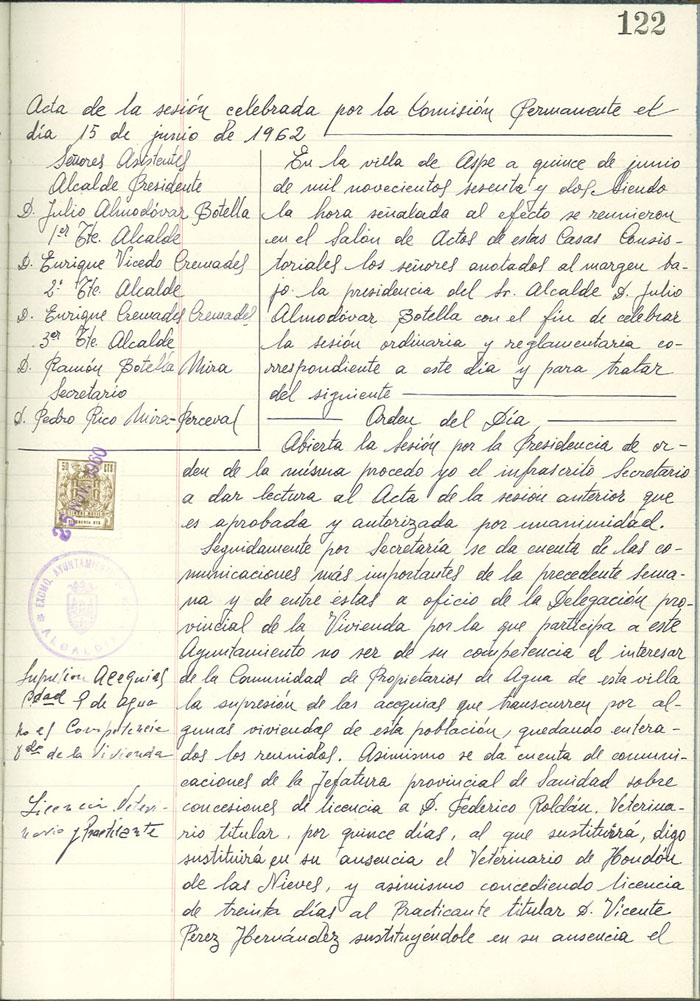 122
Acta de la sesión celebrada por la Comisión Permanente el
día 15 de junio de 1962
Señores Asistentes
Alcalde Presidente
D. Julio Almodóvar Botella
1er Tte. Alcalde
D. Enrique Vicedo Cremades
2º Tte. Alcalde
D. Enrique Cremades Cremades
3er Tte. Alcalde
D. Ramón Botella Mira
Secretario
D. Pedro Rico Mira-Perceval
En la villa de Aspe a quince de junio
de mil novecientos sesenta y dos, siendo
la hora señalada al efecto se reunieron
en el Salón de Actos de estas Casas Consis-
toriales los señores anotados al margen ba-
jo la presidencia del Sr. Alcalde D. Julio
Almodóvar Botella con el fin de celebrar
la sesión ordinaria y reglamentaria co-
rrespondiente a este día y para tratar
del siguiente
Orden del Día,
Abierta la sesión por la Presidencia de or-
den de la misma procedo yo el infrascrito Secretario
a dar lectura al Acta de la sesión anterior que
es aprobada y autorizada por unanimidad.
Seguidamente por Secretaría se da cuenta de las co-
municaciones más importantes de la precedente sema-
na y de entre estas a oficio de la Delegación pro-
vincial de la Vivienda por la que participa a este
Ayuntamiento no ser de su competencia el interesar
de la Comunidad de Propietarios de Agua de esta villa
la supresión de las acequias que transcurren por al-
gunas viviendas de esta población, quedando entera-
dos los reunidos. Asimismo se da cuenta de comuni-
caciones de la Jefatura provincial de Sanidad sobre
concesiones de licencia a D. Féderico Roldán, Veterina-
rio titular, por quince días, al que sustituira, digo
sustituirá en su ausencia el Veterinario de Hondón
de las Nieves, y asimismo concediendo licencia
de treinta días al Practicante titular D. Vicente
Pérez Hernández sustituyéndole en su ausencia el
50 CTS
25 NOV. 1960
EXCMO. AYUNTAMIENTO
ALCALDIA
Supresion Acequias
Cdad P de agua
no es Competencia
de la Vivienda
Licencia Veteri-
nario y Practicante